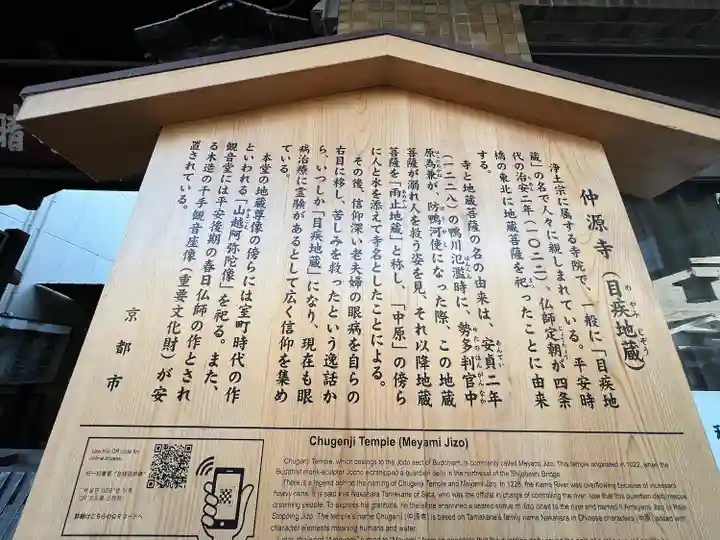 仲源寺（目疾地蔵）
めやみじぞう
浄土宗に属する寺院で、一般に「目疾地
蔵」の名で人々に親しまれている。平安時
代の治安二年（一〇二二）、仏師定朝が四条
橋の東北に地蔵菩薩を祀ったことに由来
する。
寺と地蔵菩薩の名の由来は、安貞二年
（一二二八）の鴨川氾濫時に、勢多判官中
原為兼が、防鴨河使になった際、この地蔵
菩薩が溺れ人を救う姿を見、それ以降地蔵
菩薩を「雨止地蔵」と称し、「中原」の傍ら
に人と水を添えて寺名としたことによる。
その後、信仰深い老夫婦の眼病を自らの
右目に移し、苦しみを救ったという逸話か
ら、いつしか「目疾地蔵」になり、現在も眼
病治療に霊験があるとして広く信仰を集め
ている。
本堂の地蔵尊像の傍らには室町時代の作
といわれる「山越阿弥陀像」を祀る。また、
観音堂には平安後期の春日仏師の作とされ
る木造の千手観音座像（重要文化財）が安
置されている。
京都市
Use this QR code for
online access.
詳細はこちらのQRコードへ
Chugenji Temple (Meyami Jizo)
Chugenji Temple, which belongs to the Jodo sect of Buddhism, is commonly called Meyami Jizo. This temple originated in 1022, when the
Buddhist monk-sculptor Jocho worshipped a guardian deity in the northeast of the Shijobashi Bridge.
There is a legend behind the naming of Chugenji Temple and Meyami Jizo. In 1228, the Kamo River was overflowing because of increased
heavy rains. It is said that Nakahara Tamekane of Seta, who was the official in charge of controlling the river, saw that this guardian deity rescue
drowning people. To express his gratitude, he
Stopping Jizo. The temple's name Chugenji (仲源寺) is based on Tamekane's family name Nakahara in Chinese characters (中原) added with
character elements meaning humans and water.